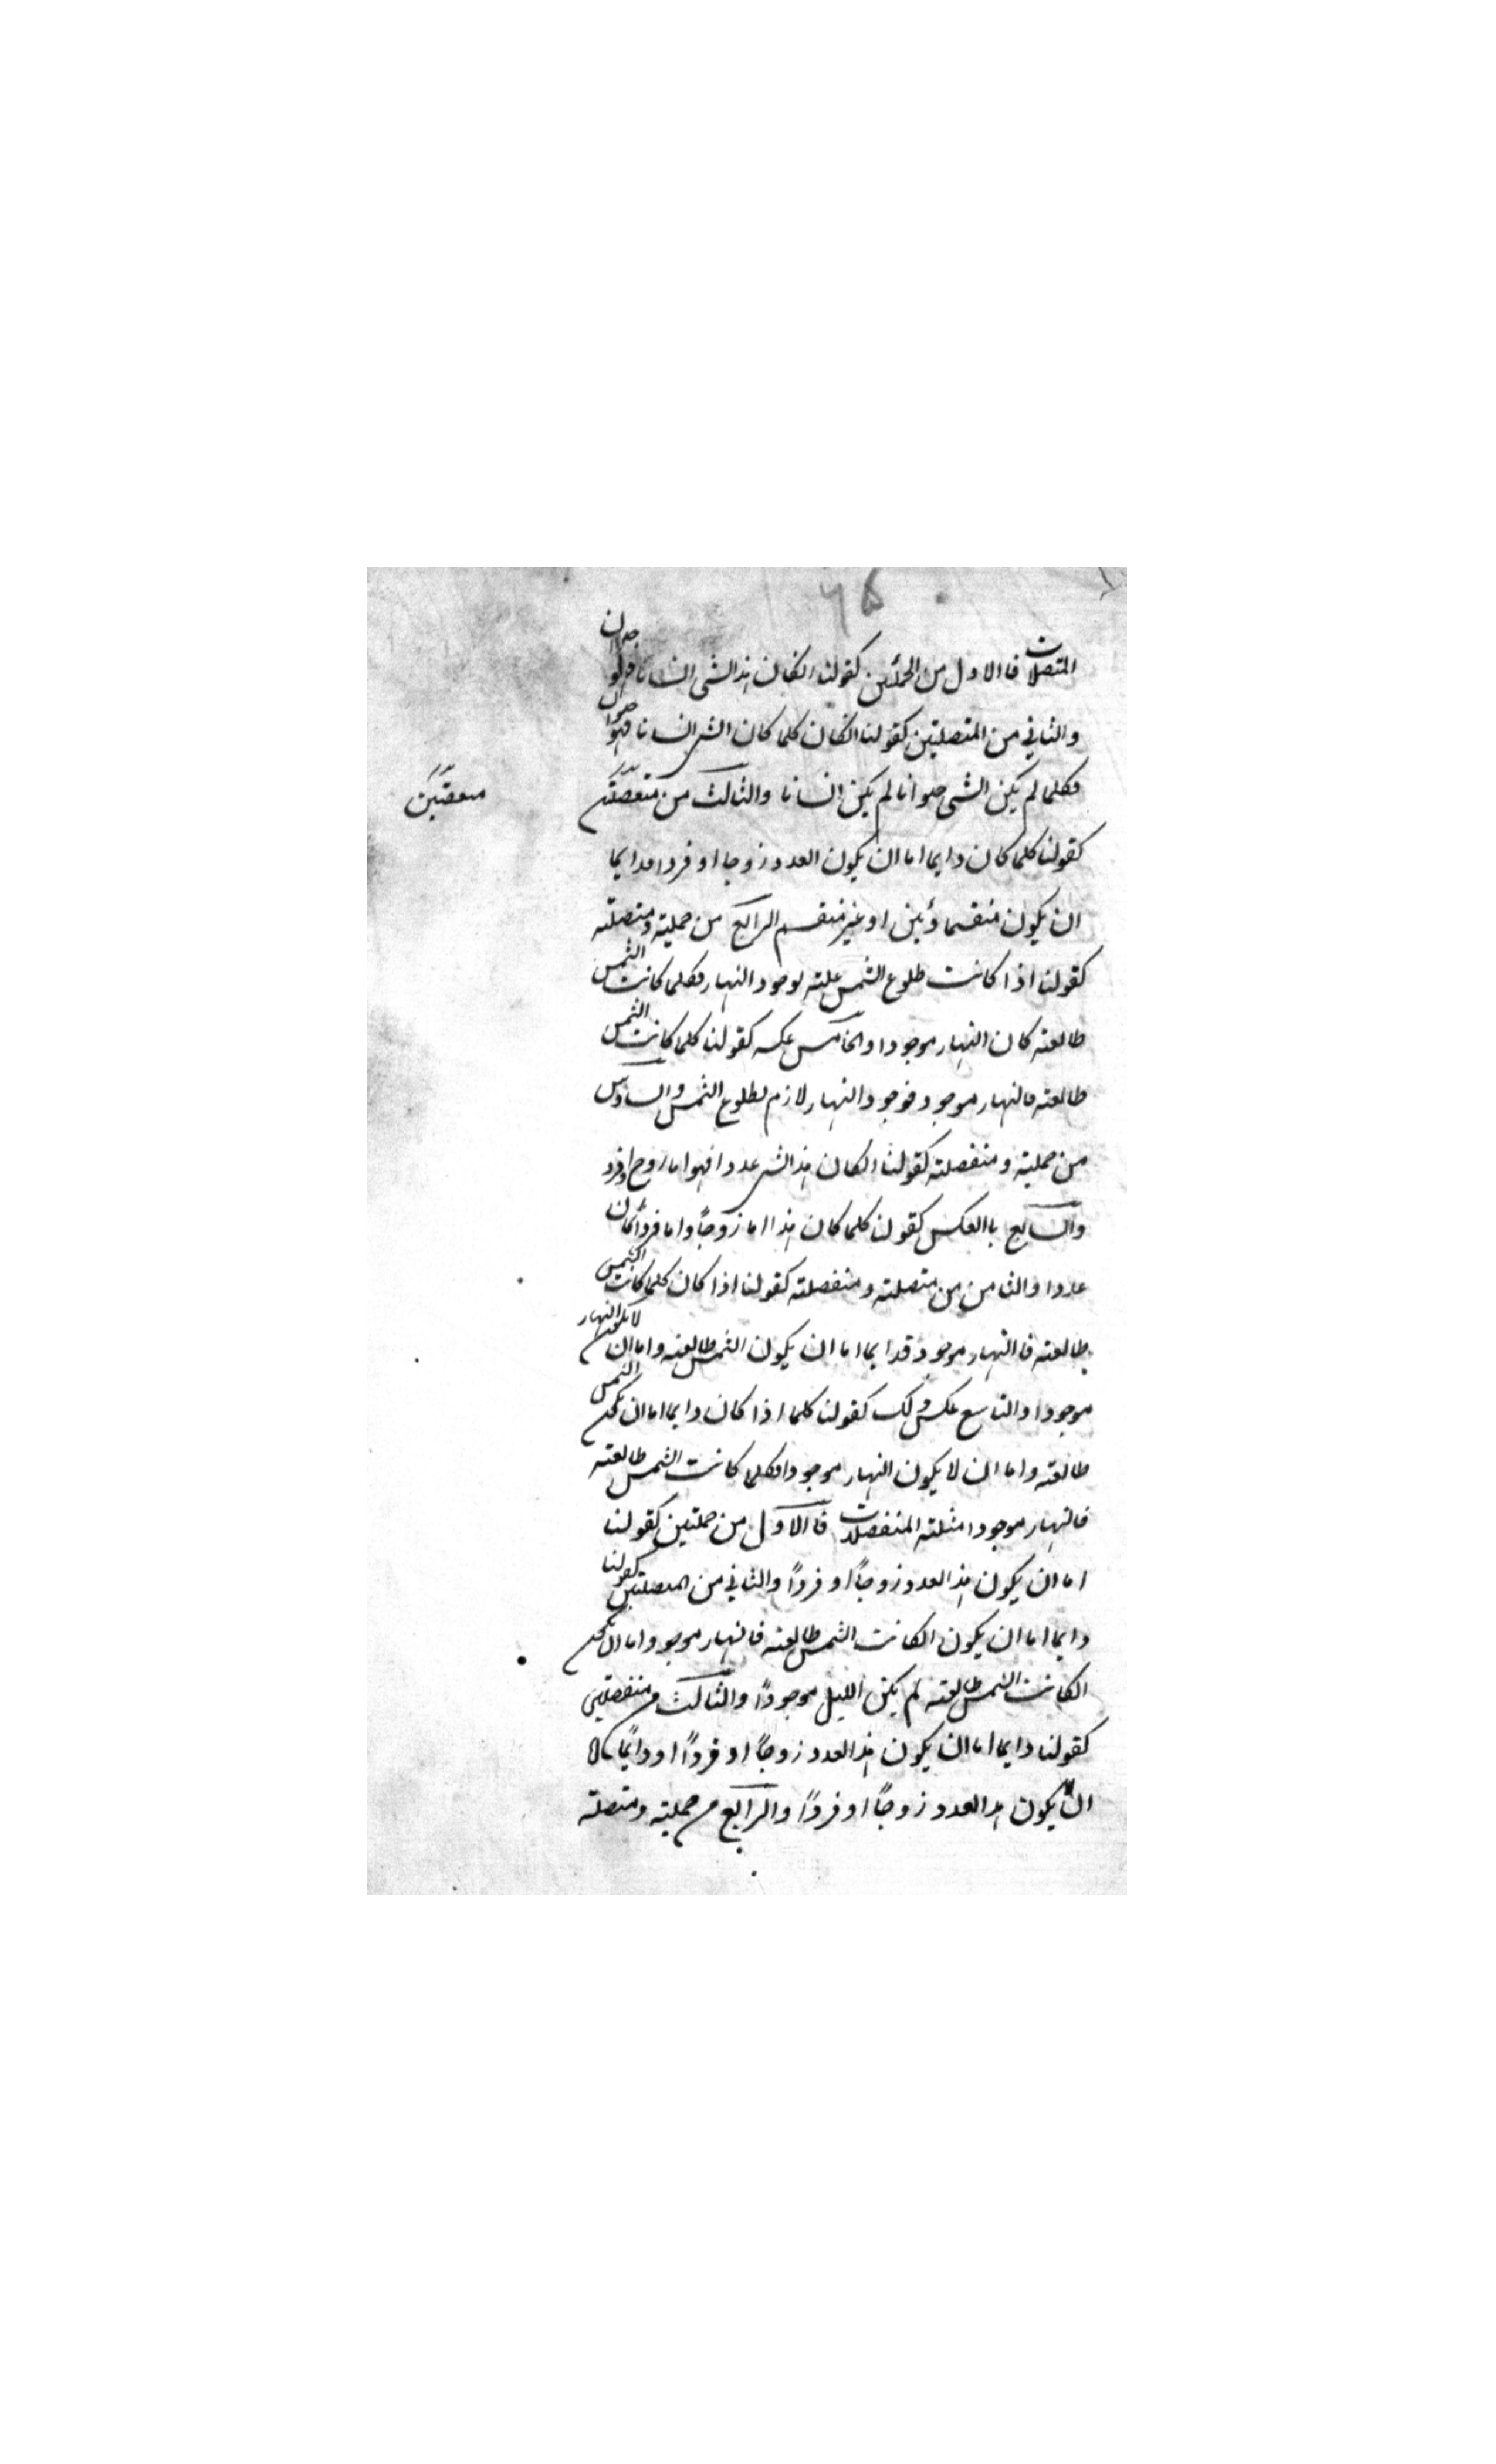 ٦٥
المتصلات فالاول من الحملتين كقولنا انكان هذا الشى انسانا فهو حيوان
والثاني من المتصلتين كقولنا انكان كلما كان الشى انسانا فهو حيوان
فكلما لم يكن الشى حيوانا لم يكن انسانا والثالث من
كقولنا كلما كان دايما اما ان يكون العدد زوجا او فردا فدايما
ان يكون منقسما او غير منقسم الرابع من حملية ومتصلته
كقولنا اذا كانت طلوع الشمس علته لوجود النهار فكلما كانت الشمس
طالعته كان النهار موجودا والخامس عكسه كقولنا كلما كانت الشمس
طالعته فالنهار موجود فوجود النهار لازم لطلوع الشمس والسادس
من حمليته ومنفصلته كقولنا انكان هذا الشى عددا فهو اما زوج او فرد
والسابع باالعكس كقولنا كلما كان هذا اما زوجًا واما فردًا كان
عددا والثامن من متصلته ومنفصلته كقولنا اذا كان كلما كانت الشمس
طالعته فاالنهار موجود فدايما اما ان يكون الشمس طالعته واما ان لا يكون النهار
موجودا والتاسع عكس ذلك كقولنا كلما اذا كان دايما اما ان يكون الشمس
طالعته واما ان لا يكون النهار موجودا فكلما كانت الشمس طالعته
فالنهار موجود امثلته المنفصلات فاالاول من حملتين كقولنا
اما ان يكون هذا العدد زوجًا او فردًا والثاني من المتصلتين كقولنا
دايما اما ان يكون انكانت الشمس طالعته فالنهار موجود واما ان يكون
انكانت الشمس طالعته لم يكن الليل موجودًا والثالث من منفصلتين
كقولنا دايما اما ان يكون هذا العدد زوجًا او فردًا او دائمًا
ان يكون هذا العدد زوجًا او فردًا والرابع من حمليته ومتصلته